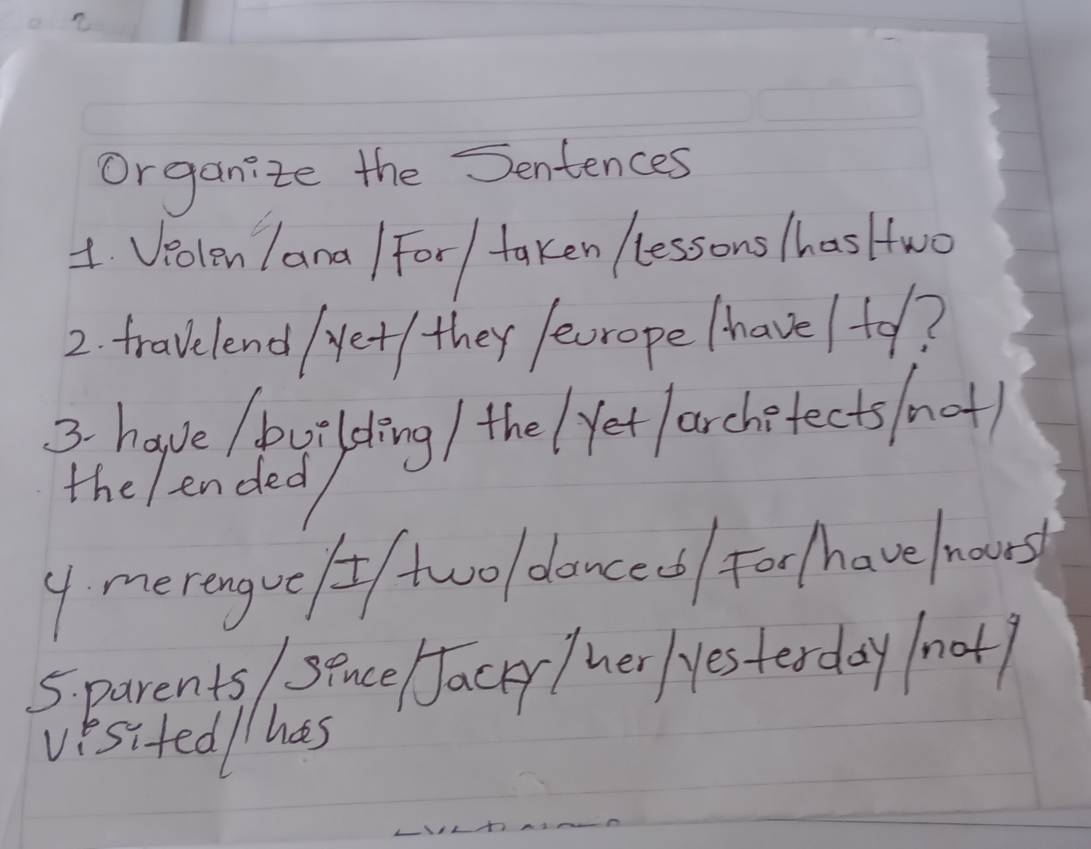 Organize the Sentences
1. Violin / ana / For / taken / lessons / has / two
2. travelend / yet / they / europe / have / to / ?
3- have / building / the / Yet / architects / not /
the / ended /
4. merengue / I / two / danced / For / have / hours /
5. parents / since / Jacky / her / yesterday / not /
visited // has